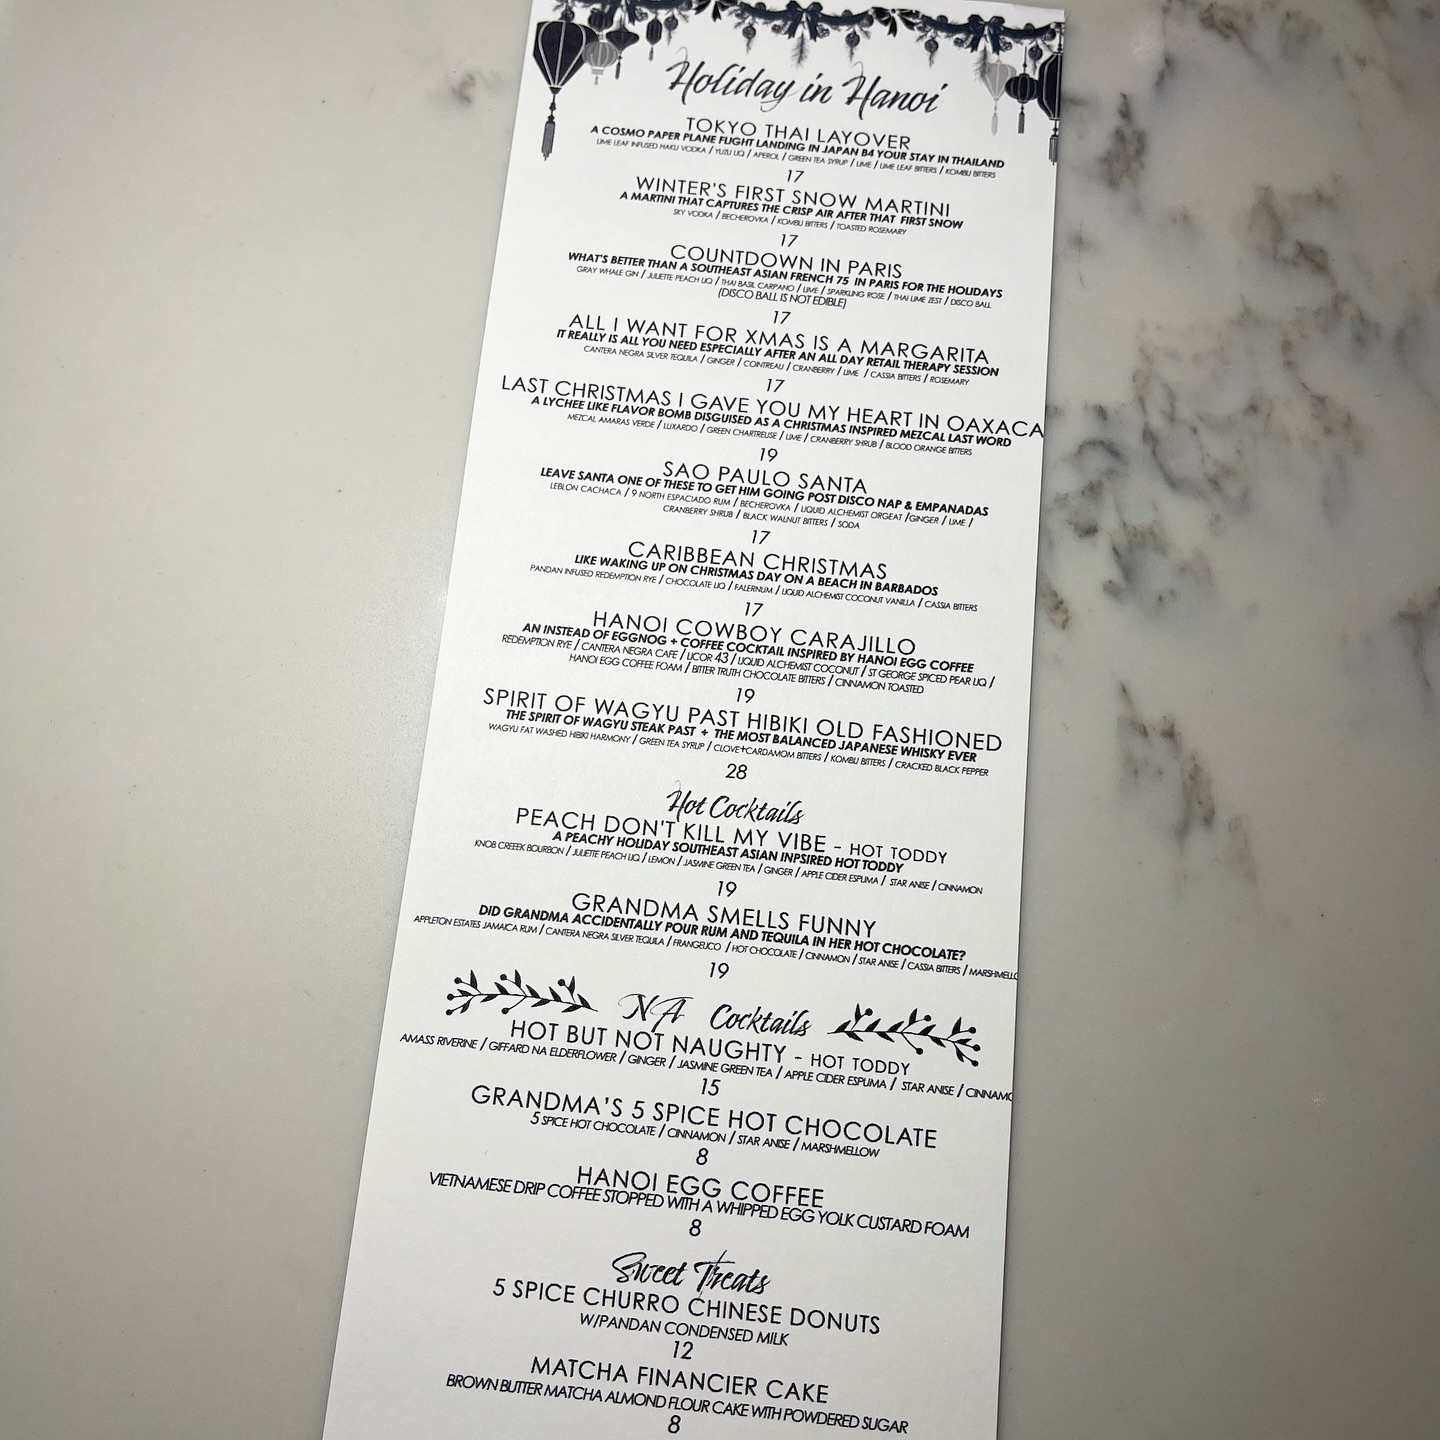 Holiday in Hanoi
TOKYO THAI LAYOVER
A COSMO PAPER PLANE FLIGHT LANDING IN JAPAN B4 YOUR STAY IN THAILAND
LIME LEAF INFUSED HAKU VODKA / YUZU LIQ / APEROL / GREEN TEA SYRUP / LIME / LIME LEAF BITTERS / KOMBU BITTERS
17
WINTER'S FIRST SNOW MARTINI
A MARTINI THAT CAPTURES THE CRISP AIR AFTER THAT FIRST SNOW
SKY VODKA / BECHEROVKA / KOMBU BITTERS / TOASTED ROSEMARY
17
COUNTDOWN IN PARIS
WHAT'S BETTER THAN A SOUTHEAST ASIAN FRENCH 75 IN PARIS FOR THE HOLIDAYS
GRAY WHALE GIN / JULIETTE PEACH LIQ / THAI BASIL CARPANO / LIME / SPARKLING ROSE / THAI LIME ZEST / DISCO BALL
(DISCO BALL IS NOT EDIBLE)
17
ALL I WANT FOR XMAS IS A MARGARITA
IT REALLY IS ALL YOU NEED ESPECIALLY AFTER AN ALL DAY RETAIL THERAPY SESSION
CANTERA NEGRA SILVER TEQUILA / GINGER / COINTREAU / CRANBERRY / LIME / CASSIA BITTERS / ROSEMARY
17
LAST CHRISTMAS I GAVE YOU MY HEART IN OAXACA
A LYCHEE LIKE FLAVOR BOMB DISGUISED AS A CHRISTMAS INSPIRED MEZCAL LAST WORD
MEZCAL AMARAS VERDE / LUXARDO / GREEN CHARTREUSE / LIME / CRANBERRY SHRUB / BLOOD ORANGE BITTERS
19
SAO PAULO SANTA
LEAVE SANTA ONE OF THESE TO GET HIM GOING POST DISCO NAP & EMPANADAS
LEBLON CACHACA / 9 NORTH ESPACIADO RUM / BECHEROVKA / LIQUID ALCHEMIST ORGEAT /GINGER / LIME /
CRANBERRY SHRUB / BLACK WALNUT BITTERS / SODA
17
CARIBBEAN CHRISTMAS
LIKE WAKING UP ON CHRISTMAS DAY ON A BEACH IN BARBADOS
PANDAN INFUSED REDEMPTION RYE / CHOCOLATE LIQ / FALERNUM / LIQUID ALCHEMIST COCONUT VANILLA / CASSIA BITTERS
17
HANOI COWBOY CARAJILLO
AN INSTEAD OF EGGNOG + COFFEE COCKTAIL INSPIRED BY HANOI EGG COFFEE
REDEMPTION RYE / CANTERA NEGRA CAFE / LICOR 43 / LIQUID ALCHEMIST COCONUT / ST GEORGE SPICED PEAR LIQ /
HANOI EGG COFFEE FOAM / BITTER TRUTH CHOCOLATE BITTERS / CINNAMON TOASTED
19
SPIRIT OF WAGYU PAST HIBIKI OLD FASHIONED
THE SPIRIT OF WAGYU STEAK PAST + THE MOST BALANCED JAPANESE WHISKY EVER
WAGYU FAT WASHED HIBIKI HARMONY / GREEN TEA SYRUP / CLOVE+CARDAMOM BITTERS / KOMBU BITTERS / CRACKED BLACK PEPPER
28
Hot Cocktails
PEACH DON'T KILL MY VIBE - HOT TODDY
A PEACHY HOLIDAY SOUTHEAST ASIAN INPSIRED HOT TODDY
KNOB CREEEK BOURBON / JULIETTE PEACH LIQ / LEMON / JASMINE GREEN TEA / GINGER / APPLE CIDER ESPUMA / STAR ANISE / CINNAMON
19
GRANDMA SMELLS FUNNY
DID GRANDMA ACCIDENTALLY POUR RUM AND TEQUILA IN HER HOT CHOCOLATE?
APPLETON ESTATES JAMAICA RUM / CANTERA NEGRA SILVER TEQUILA / FRANGELICO / HOT CHOCOLATE / CINNAMON / STAR ANISE / CASSIA BITTERS / MARSHMELLO
19
NA Cocktails
HOT BUT NOT NAUGHTY - HOT TODDY
AMASS RIVERINE / GIFFARD NA ELDERFLOWER / GINGER / JASMINE GREEN TEA / APPLE CIDER ESPUMA / STAR ANISE / CINNAMO
15
GRANDMA'S 5 SPICE HOT CHOCOLATE
5 SPICE HOT CHOCOLATE / CINNAMON / STAR ANISE / MARSHMELLOW
8
HANOI EGG COFFEE
VIETNAMESE DRIP COFFEE STOPPED WITH A WHIPPED EGG YOLK CUSTARD FOAM
8
Sweet Treats
5 SPICE CHURRO CHINESE DONUTS
W/PANDAN CONDENSED MILK
12
MATCHA FINANCIER CAKE
BROWN BUTTER MATCHA ALMOND FLOUR CAKE WITH POWDERED SUGAR
8